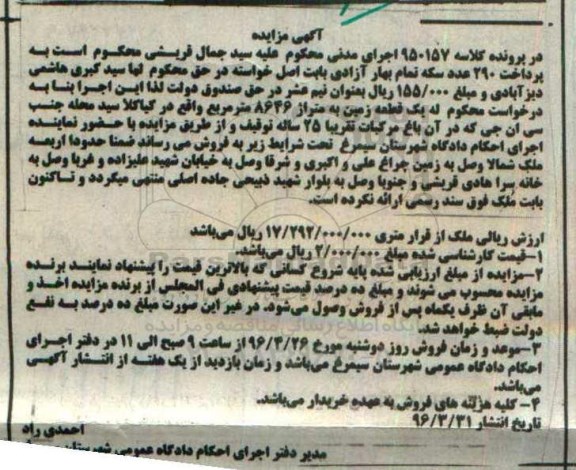 آگهی مزایده
در پرونده کلاسه ۹۵۰۱۵۷ اجرای مدنی محکوم علیه سید جمال قریشی محکوم است به
پرداخت ۲۹۰ عدد سکه تمام بهار آزادی بابت اصل خواسته در حق محکوم لها سید کبری هاشمی
دیزآبادی و مبلغ ۱۵۵/۰۰۰ ریال بعنوان نیم عشر در حق صندوق دولت لذا این اجرا بنا به
درخواست محکوم له یک قطعه زمین به متراژ ۸۶۴۶ مترمربع واقع در کیاکلا سید محله جنب
سی ان جی که در آن باغ مرکبات تقریبا ۲۵ ساله توقیف و از طریق مزایده با حضور نماینده
اجرای احکام دادگاه شهرستان سیمرغ تحت شرایط زیر به فروش می رساند ضمنا حدود اربعه
ملک شمالا وصل به زمین چراغ علی و اکبری و شرقا وصل به خیابان شهید علیزاده و غربا وصل به
خانه سرا هادی قریشی و جنوبا وصل به بلوار شهید ذبیحی جاده اصلی منتهی میگردد و تاکنون
بابت ملک فوق سند رسمی ارائه نکرده است.
ارزش ریالی ملک از قرار متری ۱۷/۲۹۲/۰۰۰/۰۰۰ ریال میباشد
۱-قیمت کارشناسی شده مبلغ ۲/۰۰۰/۰۰۰ ریال میباشد.
۲-مزایده از مبلغ ارزیابی شده پایه شروع کسانی که بالاترین قیمت را پیشنهاد نمایند برنده
مزایده محسوب می شوند و مبلغ ده درصد قیمت پیشنهادی فی المجلس از برنده مزایده اخذ و
مابقی آن ظرف یکماه پس از فروش وصول می‌شود. در غیر این صورت مبلغ ده درصد به نفع
دولت ضبط خواهد شد.
۳-موعد و زمان فروش روز دوشنبه مورخ ۹۶/۴/۲۶ از ساعت ۹ صبح الی ۱۱ در دفتر اجرای
احکام دادگاه عمومی شهرستان سیمرغ می‌باشد و زمان بازدید از یک هفته از انتشار آگهی
می‌باشد.
۴- کلیه هزینه های فروش به عهده خریدار می‌باشد.
تاریخ انتشار ۹۶/۳/۳۱
احمدی راد
مدیر دفتر اجرای احکام دادگاه عمومی